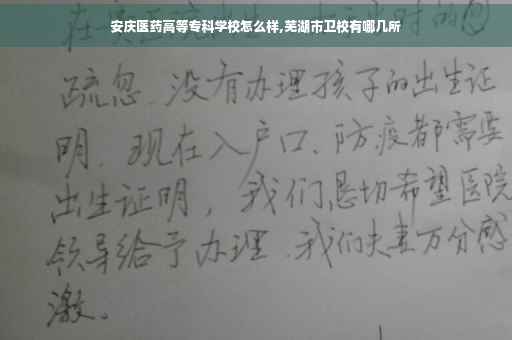 安庆医药高等专科学校怎么样,芜湖市卫校有哪几所
疏忽、没有办理孩子的出生证
明、现在入户口、防疫都需要
出生证明，我们恳切希望医院
领导给予办理、我们夫妻万分感
激。